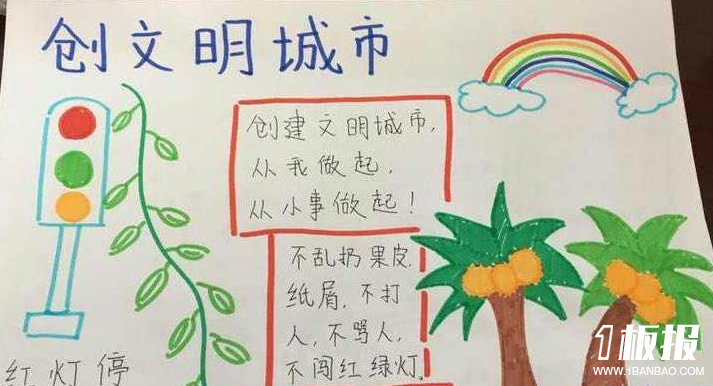 创文明城市
创建文明城市,
从我做起,
从小事做起!
不乱扔果皮
纸屑,不打
人,不骂人,
不闯红绿灯.
红灯停
1板报
WWW.1BANBAO.COM